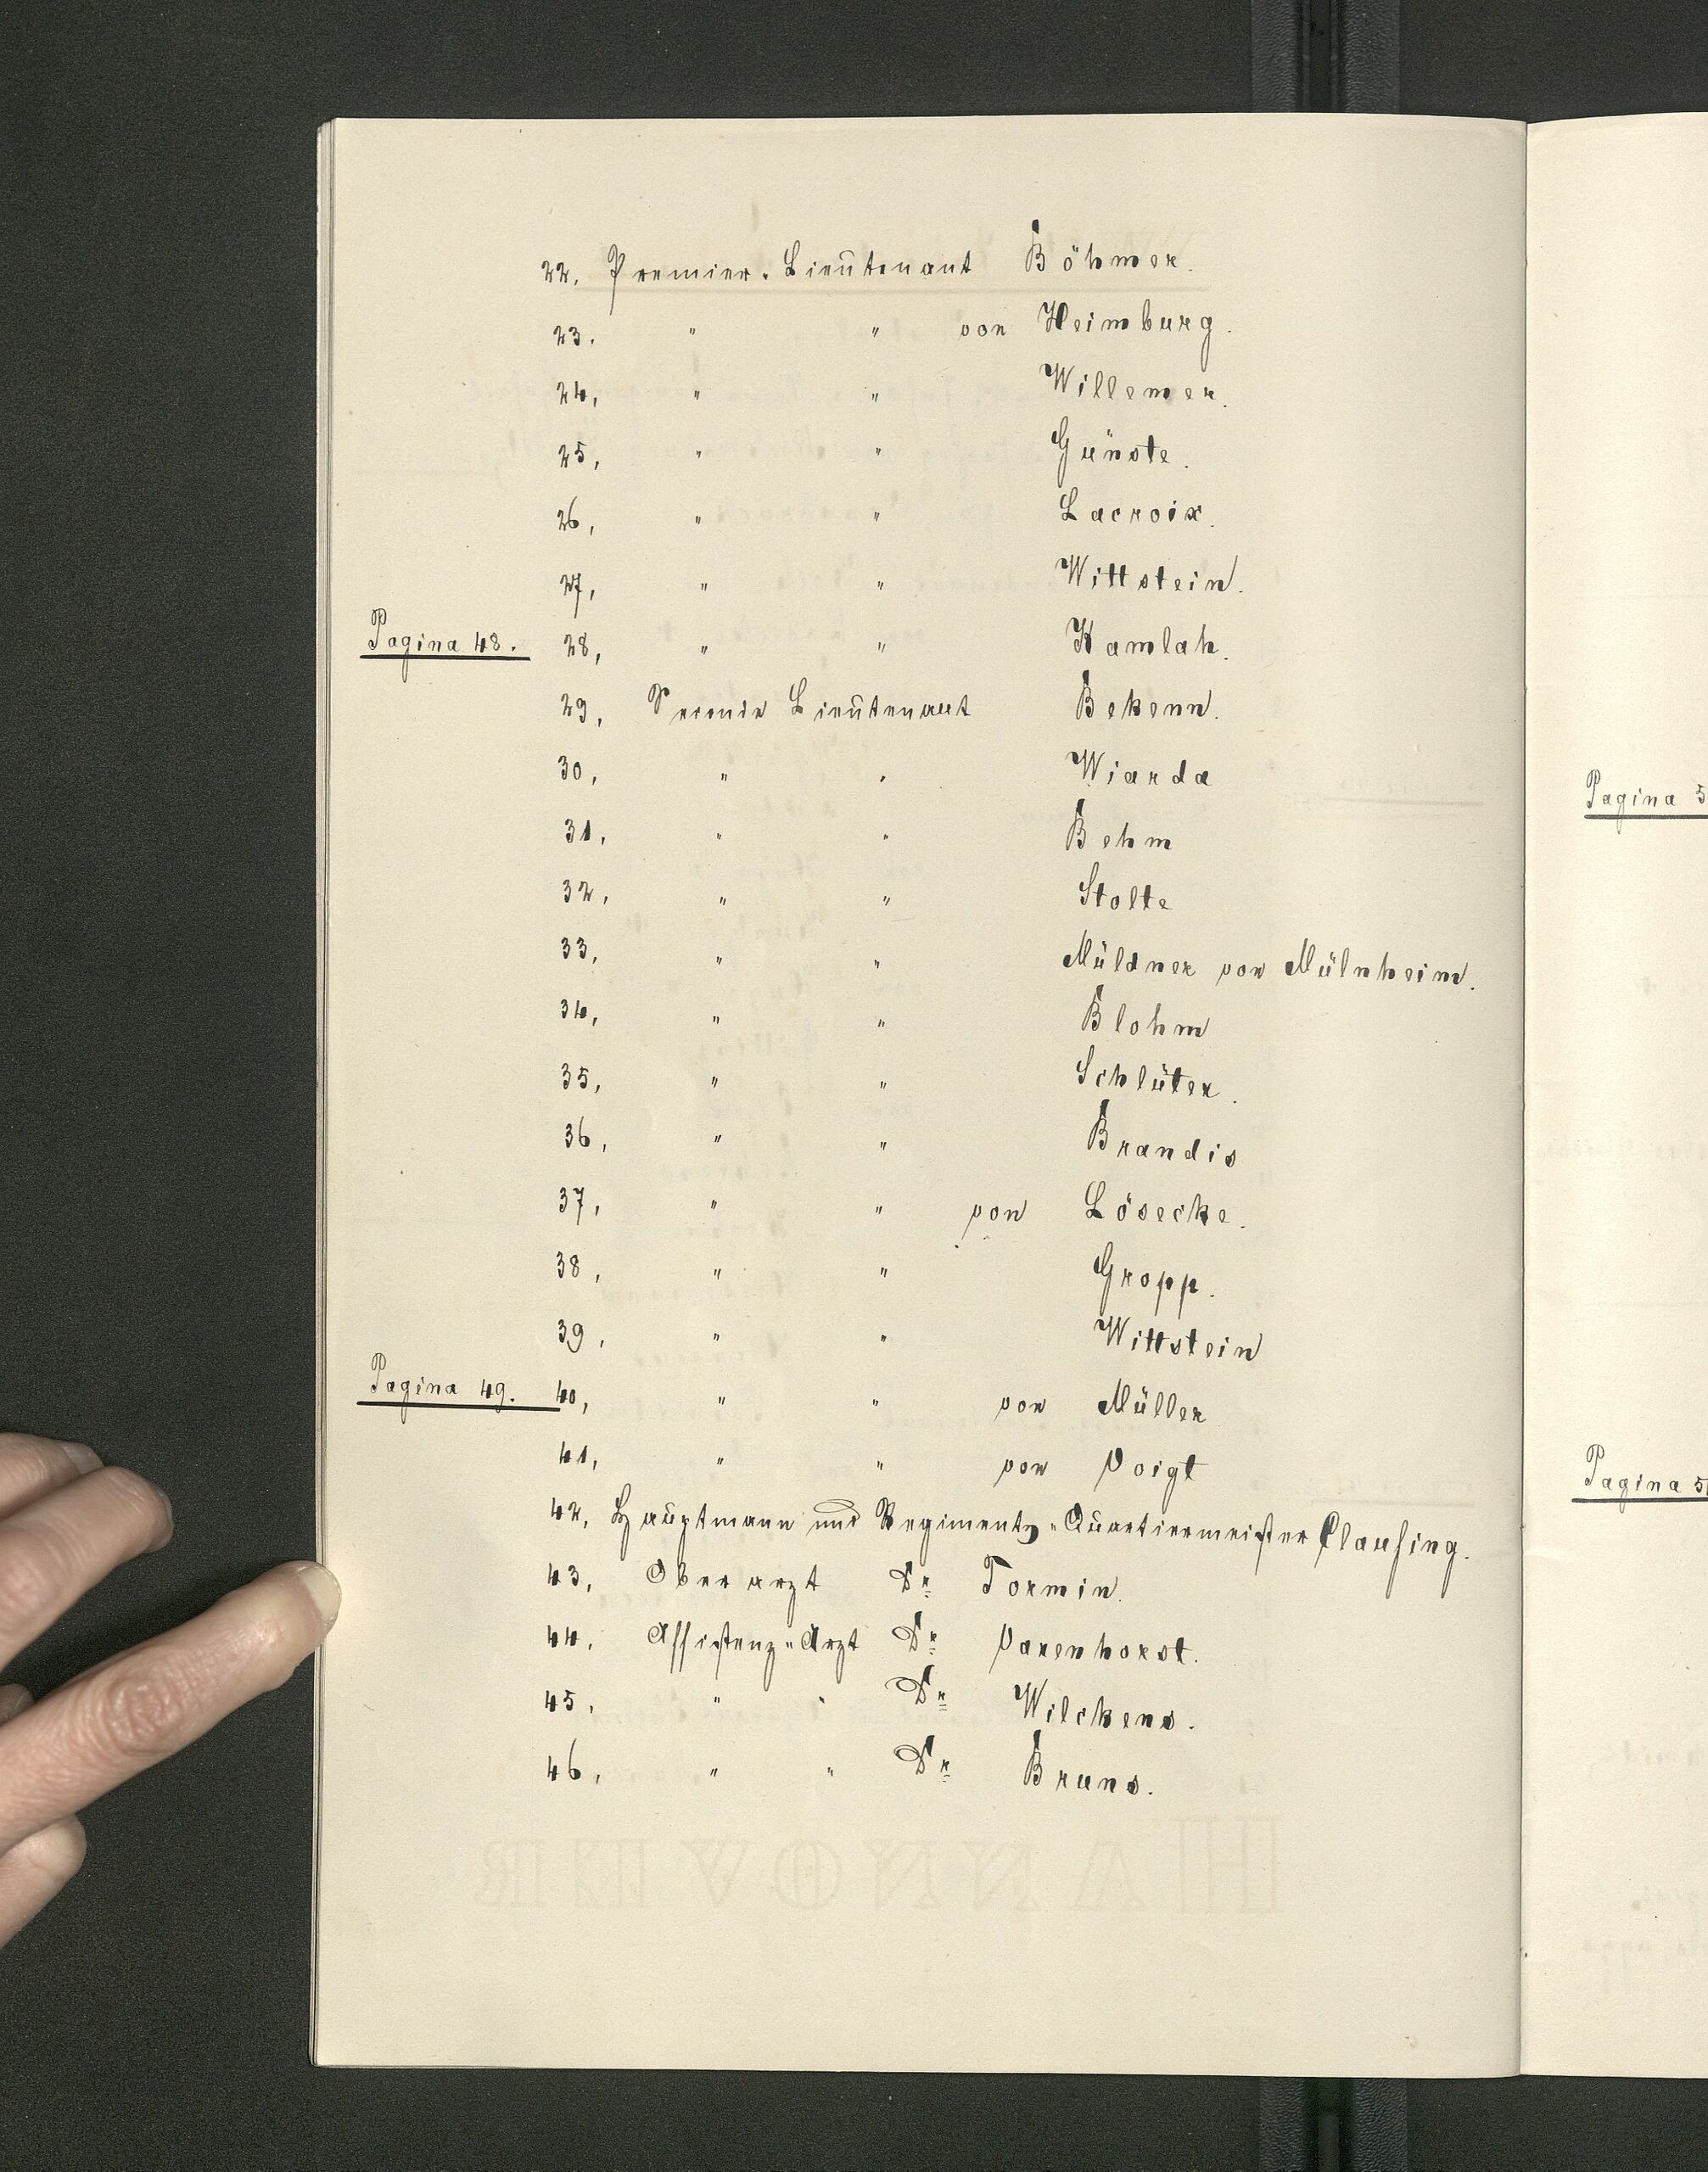 22. Premier-Lieutenant Böhmer.
23. " " von Heimburg.
24, " " Willemer.
25, " " Günste.
26, " " Lacroix.
27, " " Wittstein.
Pagina 48. 28, " " Kamlah.
29, Seconde Lieutenant Bekenn.
30, " " Wiarda
31, " " Behm
32, " " Stolte
33, " " Müldner von Mülnheim.
34, " " Blohm
35, " " Schlüter.
36, " " Brandis
37, " " von Lösecke.
38, " " Gropp.
39, " " Wittstein
Pagina 49. 40, " " von Müller
41, " " von Voigt
42, Hauptmann und Regiments-Quartiermeister Clausing.
43, Ober arzt Dr Tormin.
44, Assistenz-Arzt Dr Varenhorst.
45, " " Dr Wilckens.
46, " " Dr Bruns.
Pagina 5
Pagina 5